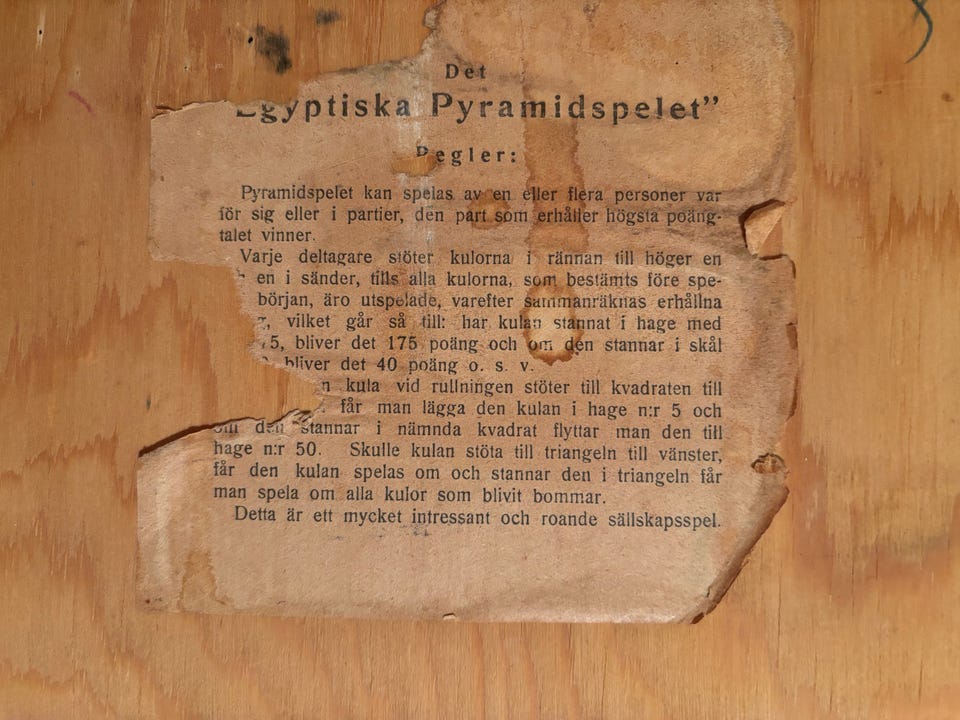 Det
Egyptiska Pyramidspelet”
Regler:
Pyramidspelet kan spelas av en eller flera personer var
för sig eller i partier, den part som erhåller högsta poäng-
talet vinner.
Varje deltagare stöter kulorna i rännan till höger en
en i sänder, tills alla kulorna, som bestämts före spe-
början, äro utspelade, varefter sammanräknas erhållna
vilket går så till: har kulan stannat i hage med
5, bliver det 175 poäng och om den stannar i skål
bliver det 40 poäng o. s. v.
kula vid rullningen stöter till kvadraten till
får man lägga den kulan i hage n:r 5 och
om den stannar i nämnda kvadrat flyttar man den till
hage n:r 50. Skulle kulan stöta till triangeln till vänster,
får den kulan spelas om och stannar den i triangeln får
man spela om alla kulor som blivit bommar.
Detta är ett mycket intressant och roande sällskapsspel.